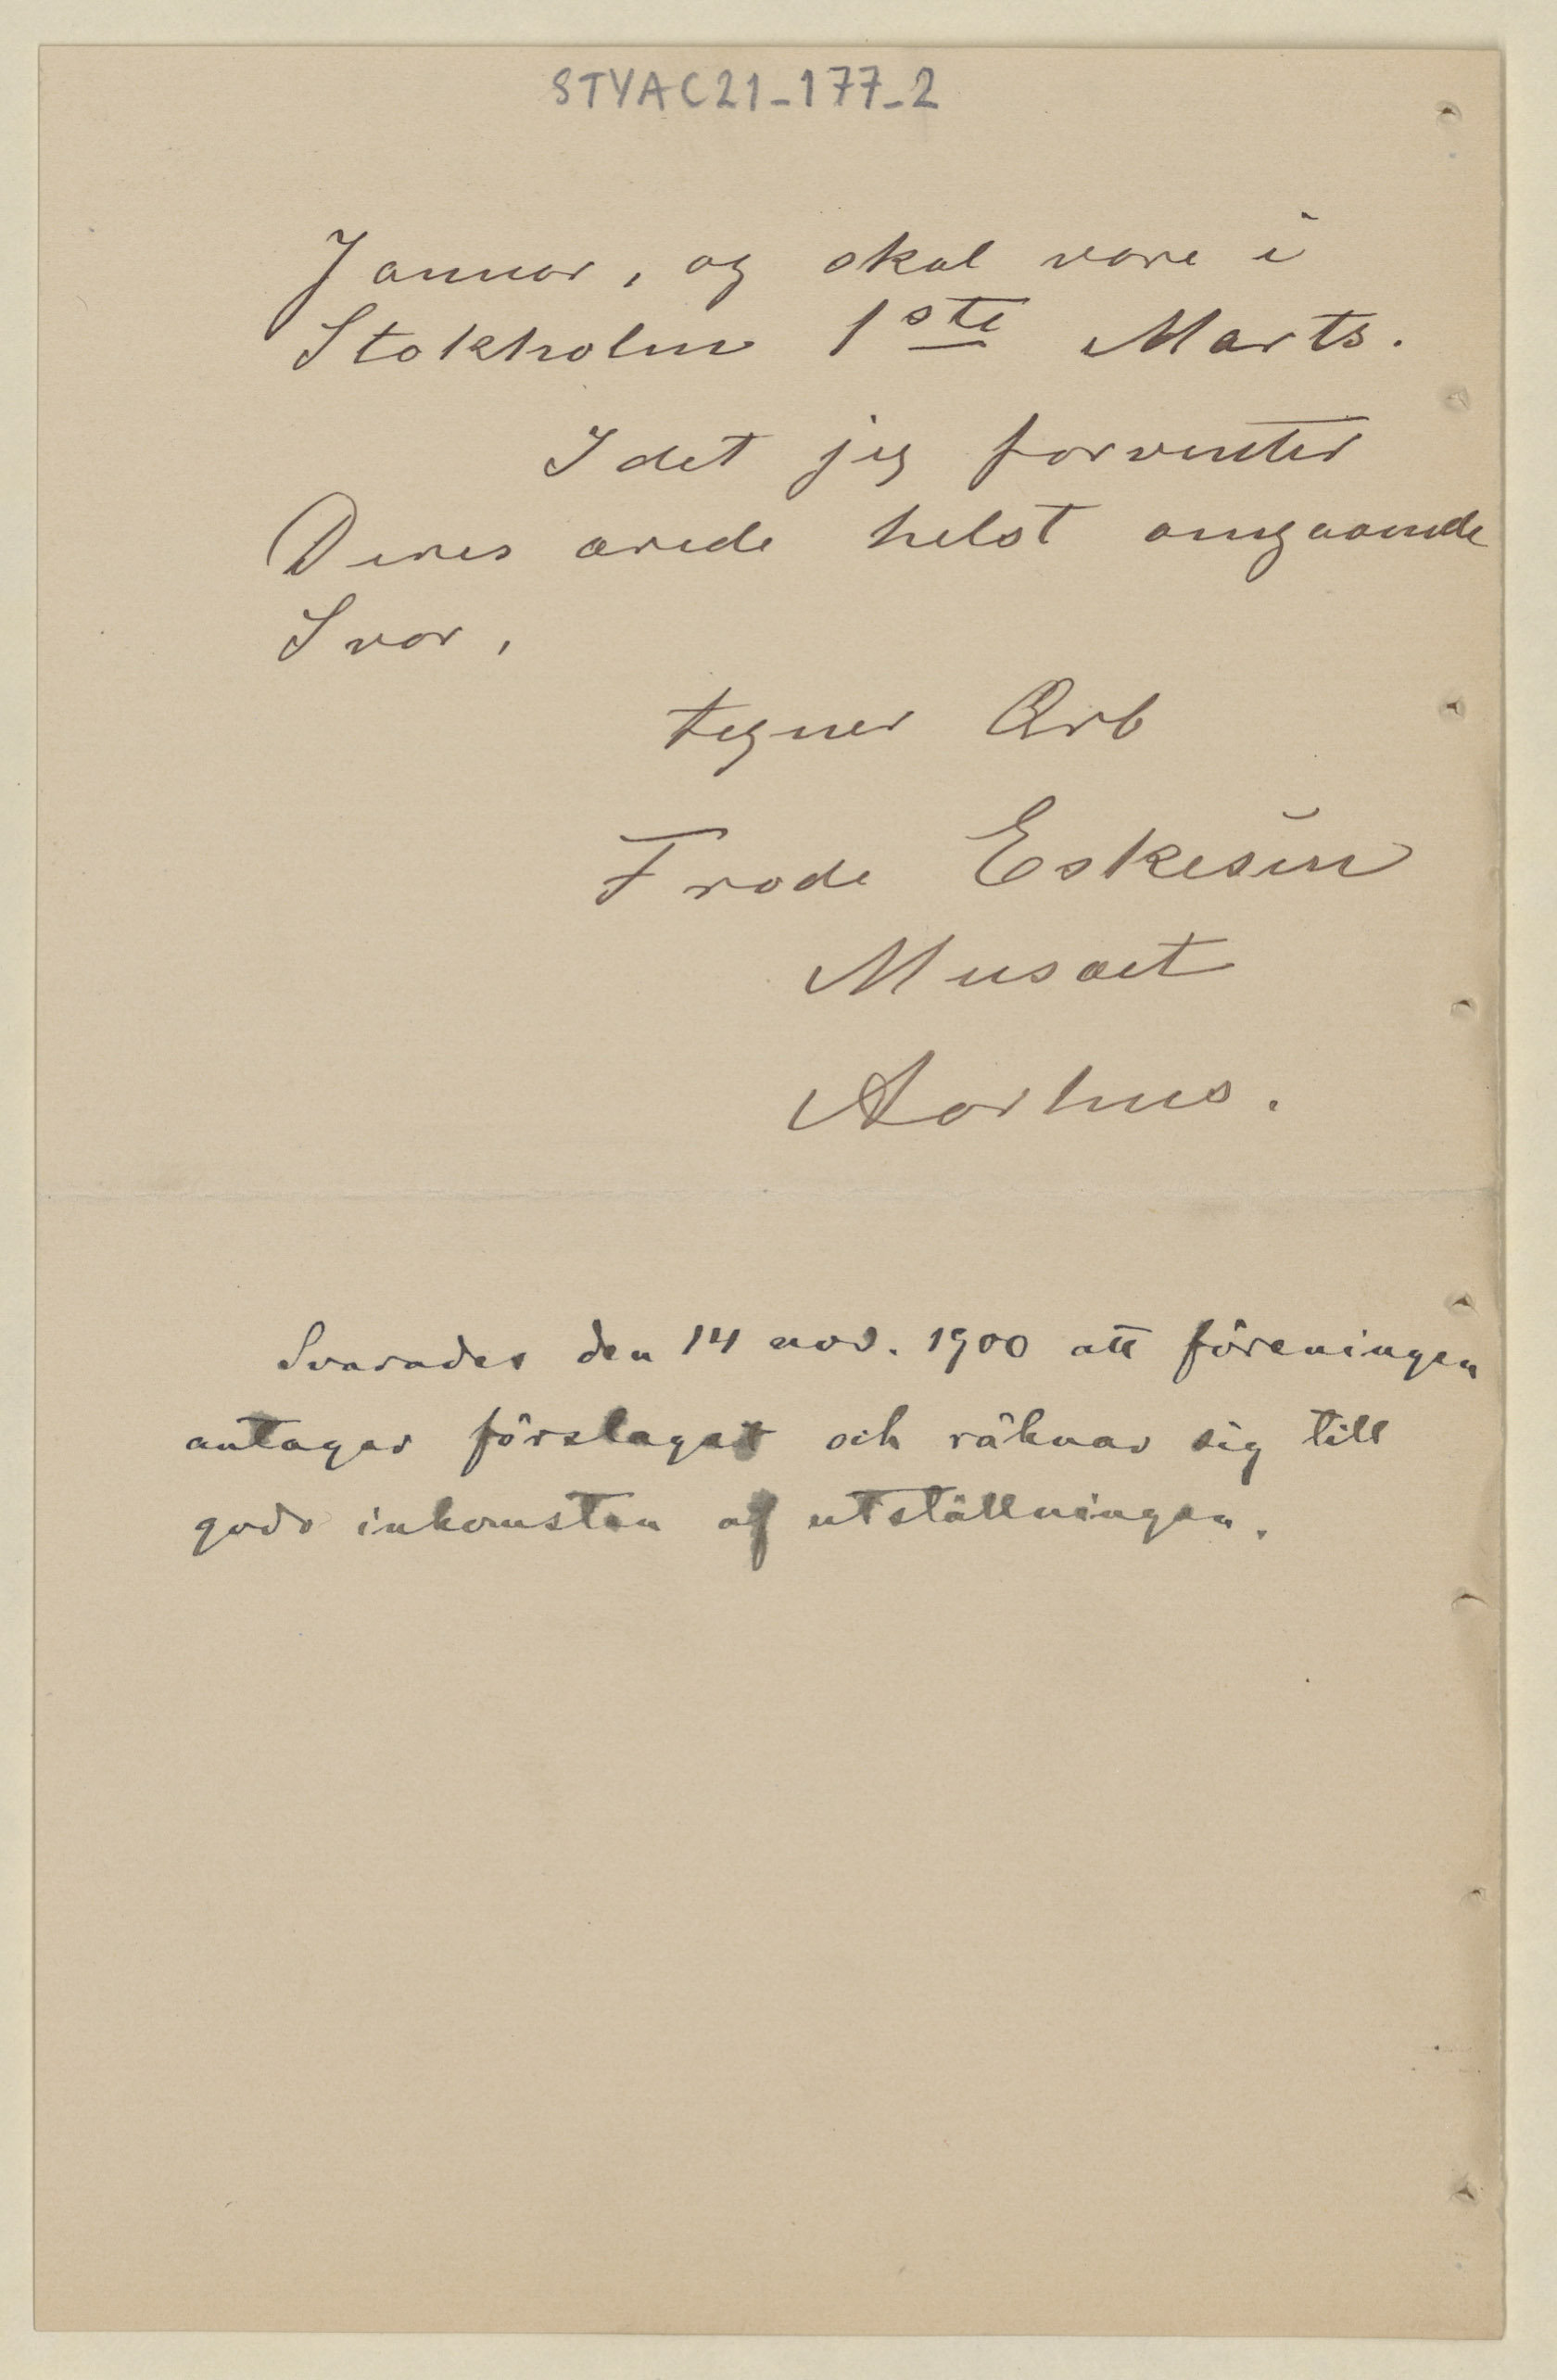 STYAC21-177-2
Januar, og skal være i
Stokholm 1ste Marts.
Idet jeg forventer
Deres ærede helst omgaaende
Svar,
tegner Ærb
Frode Eskesen
Musæet
Aarhus.
Svarades den 14 nov. 1900 att föreningen
antager förslaget och räknar sig till
godo inkomsten af utställningen.